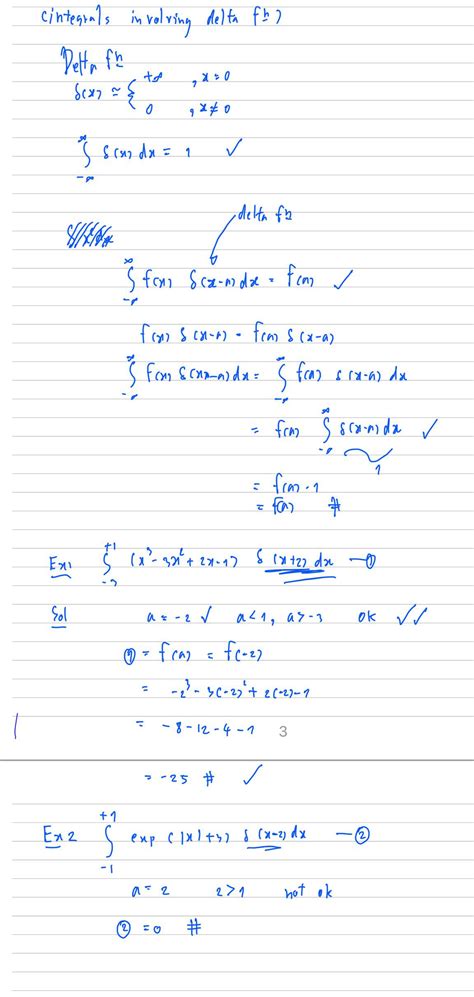 (integrals involving delta fⁿ)
Delta fⁿ
δ(x) ≃ { +∞ , x = 0
0 , x ≠ 0
∫_{-∞}^{∞} δ(x) dx = 1 ✓
delta fⁿ
∫_{-∞}^{∞} f(x) δ(x-a) dx = f(a) ✓
f(x) δ(x-a) = f(a) δ(x-a)
∫_{-∞}^{∞} f(x) δ(x-a) dx = ∫_{-∞}^{∞} f(a) δ(x-a) dx
= f(a) ∫_{-∞}^{∞} δ(x-a) dx ✓
1
= f(a) · 1
= f(a) #
Ex1 ∫_{-3}^{+1} (x³ - 3x² + 2x - 1) δ(x+2) dx — ①
Sol a = -2 ✓ a < 1, a > -3 ok ✓✓
① = f(a) = f(-2)
= -2³ - 3(-2)² + 2(-2) - 1
= -8 - 12 - 4 - 1 3
= -25 # ✓
Ex2 ∫_{-1}^{+1} exp(|x|+3) δ(x-2) dx — ②
a = 2 2 > 1 not ok
② = 0 #